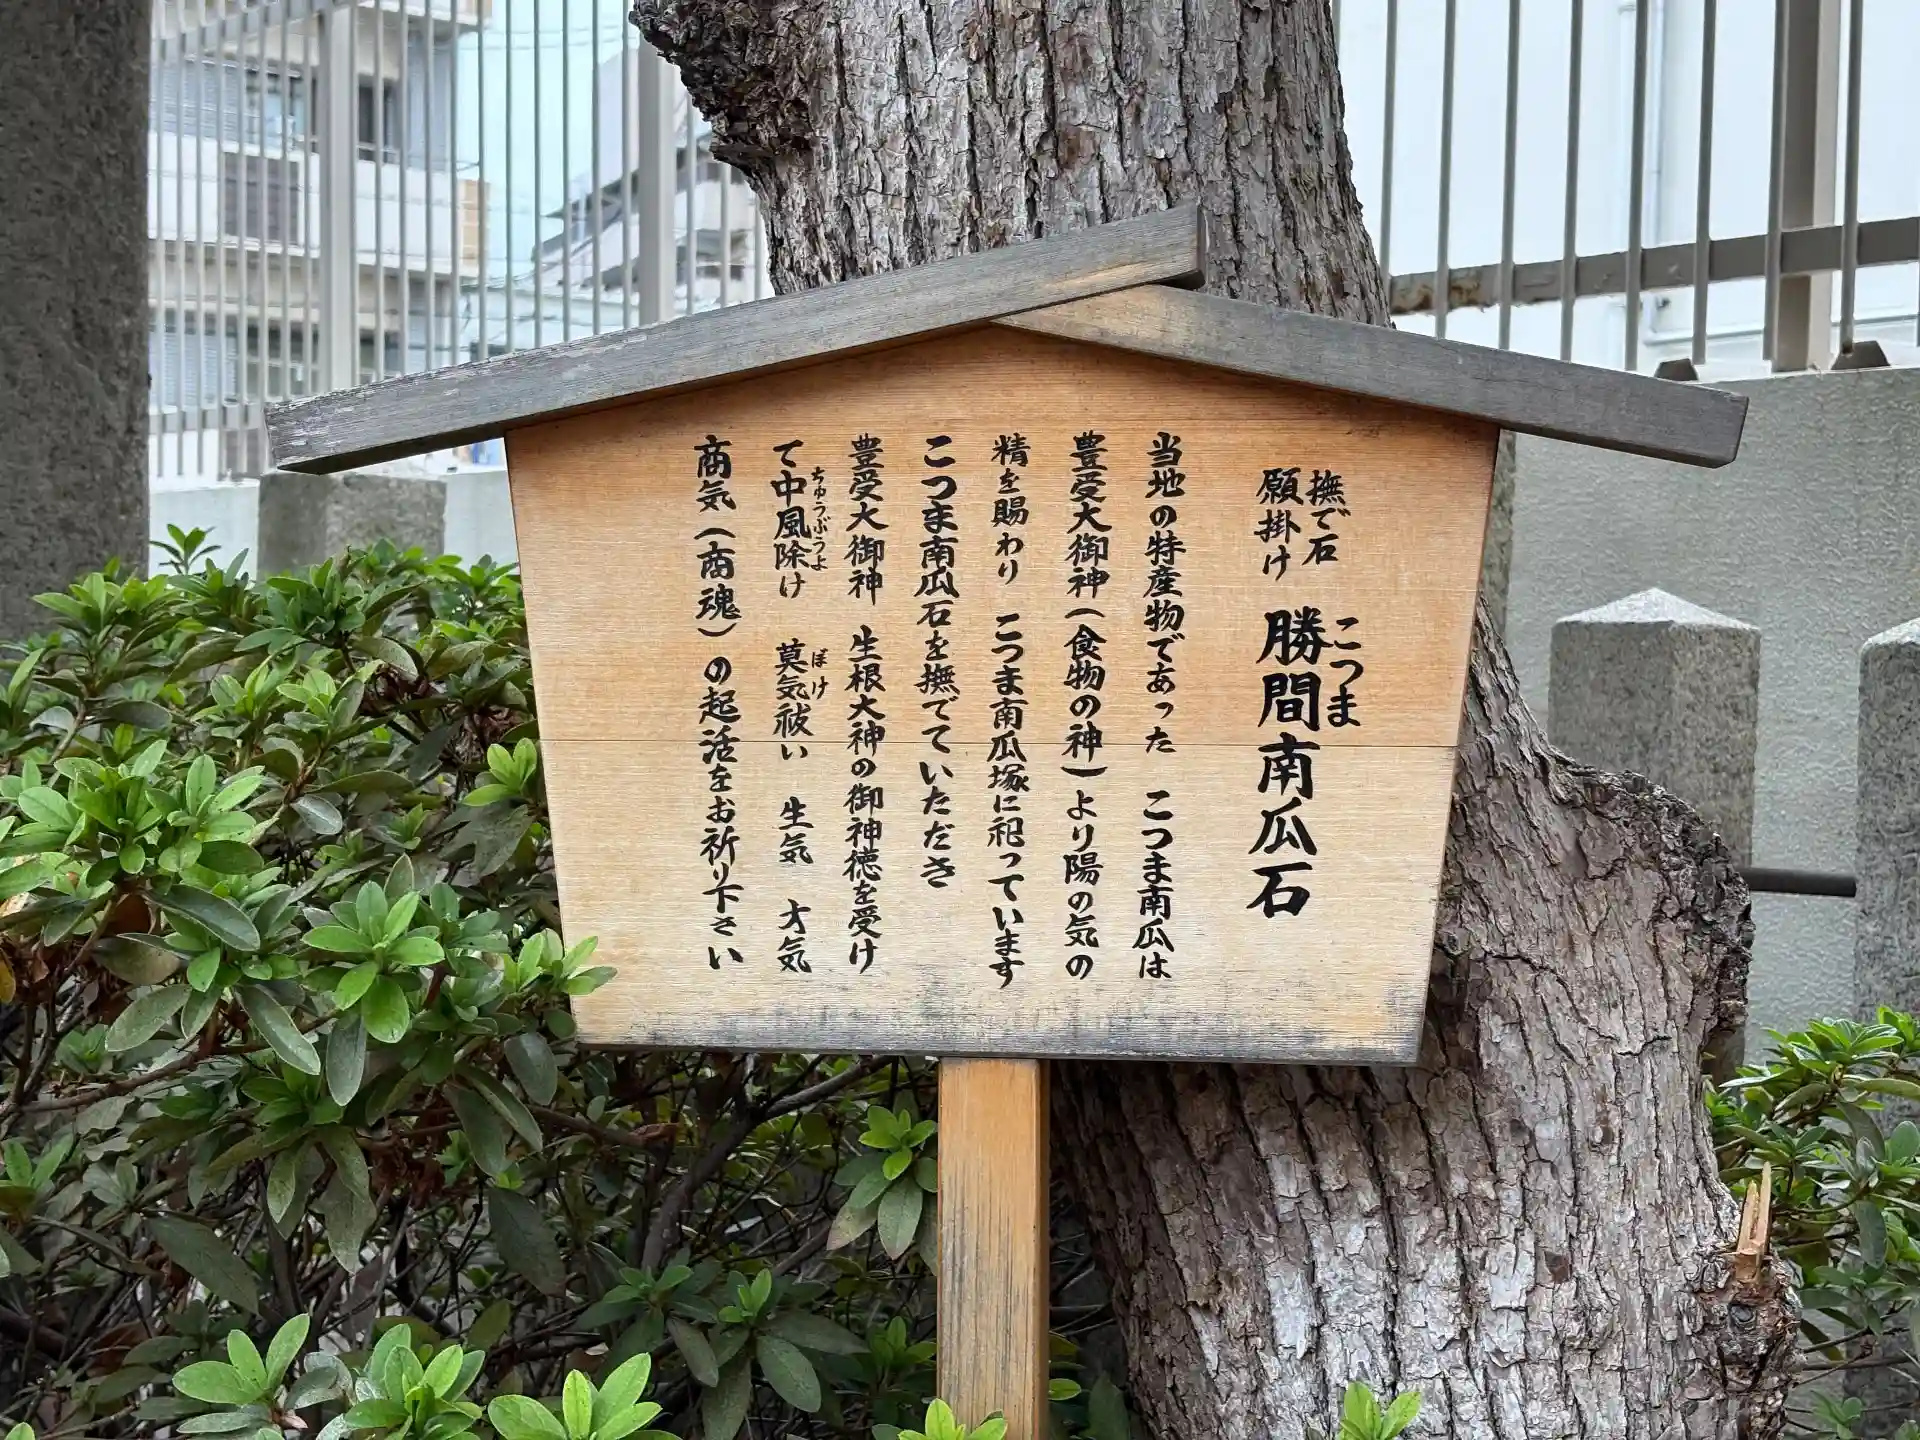 撫で石
願掛け
勝間南瓜石
こつま
当地の特産物であった こつま南瓜は
豊受大御神(食物の神)より陽の気の
精を賜わり こつま南瓜塚に祀っています
こつま南瓜石を撫でていただき
豊受大御神 生根大神の御神徳を受け
て中風除け 莫気祓い 生気 才気
ちゅうぶうよ ぼけ
商気(商魂)の起活をお祈り下さい